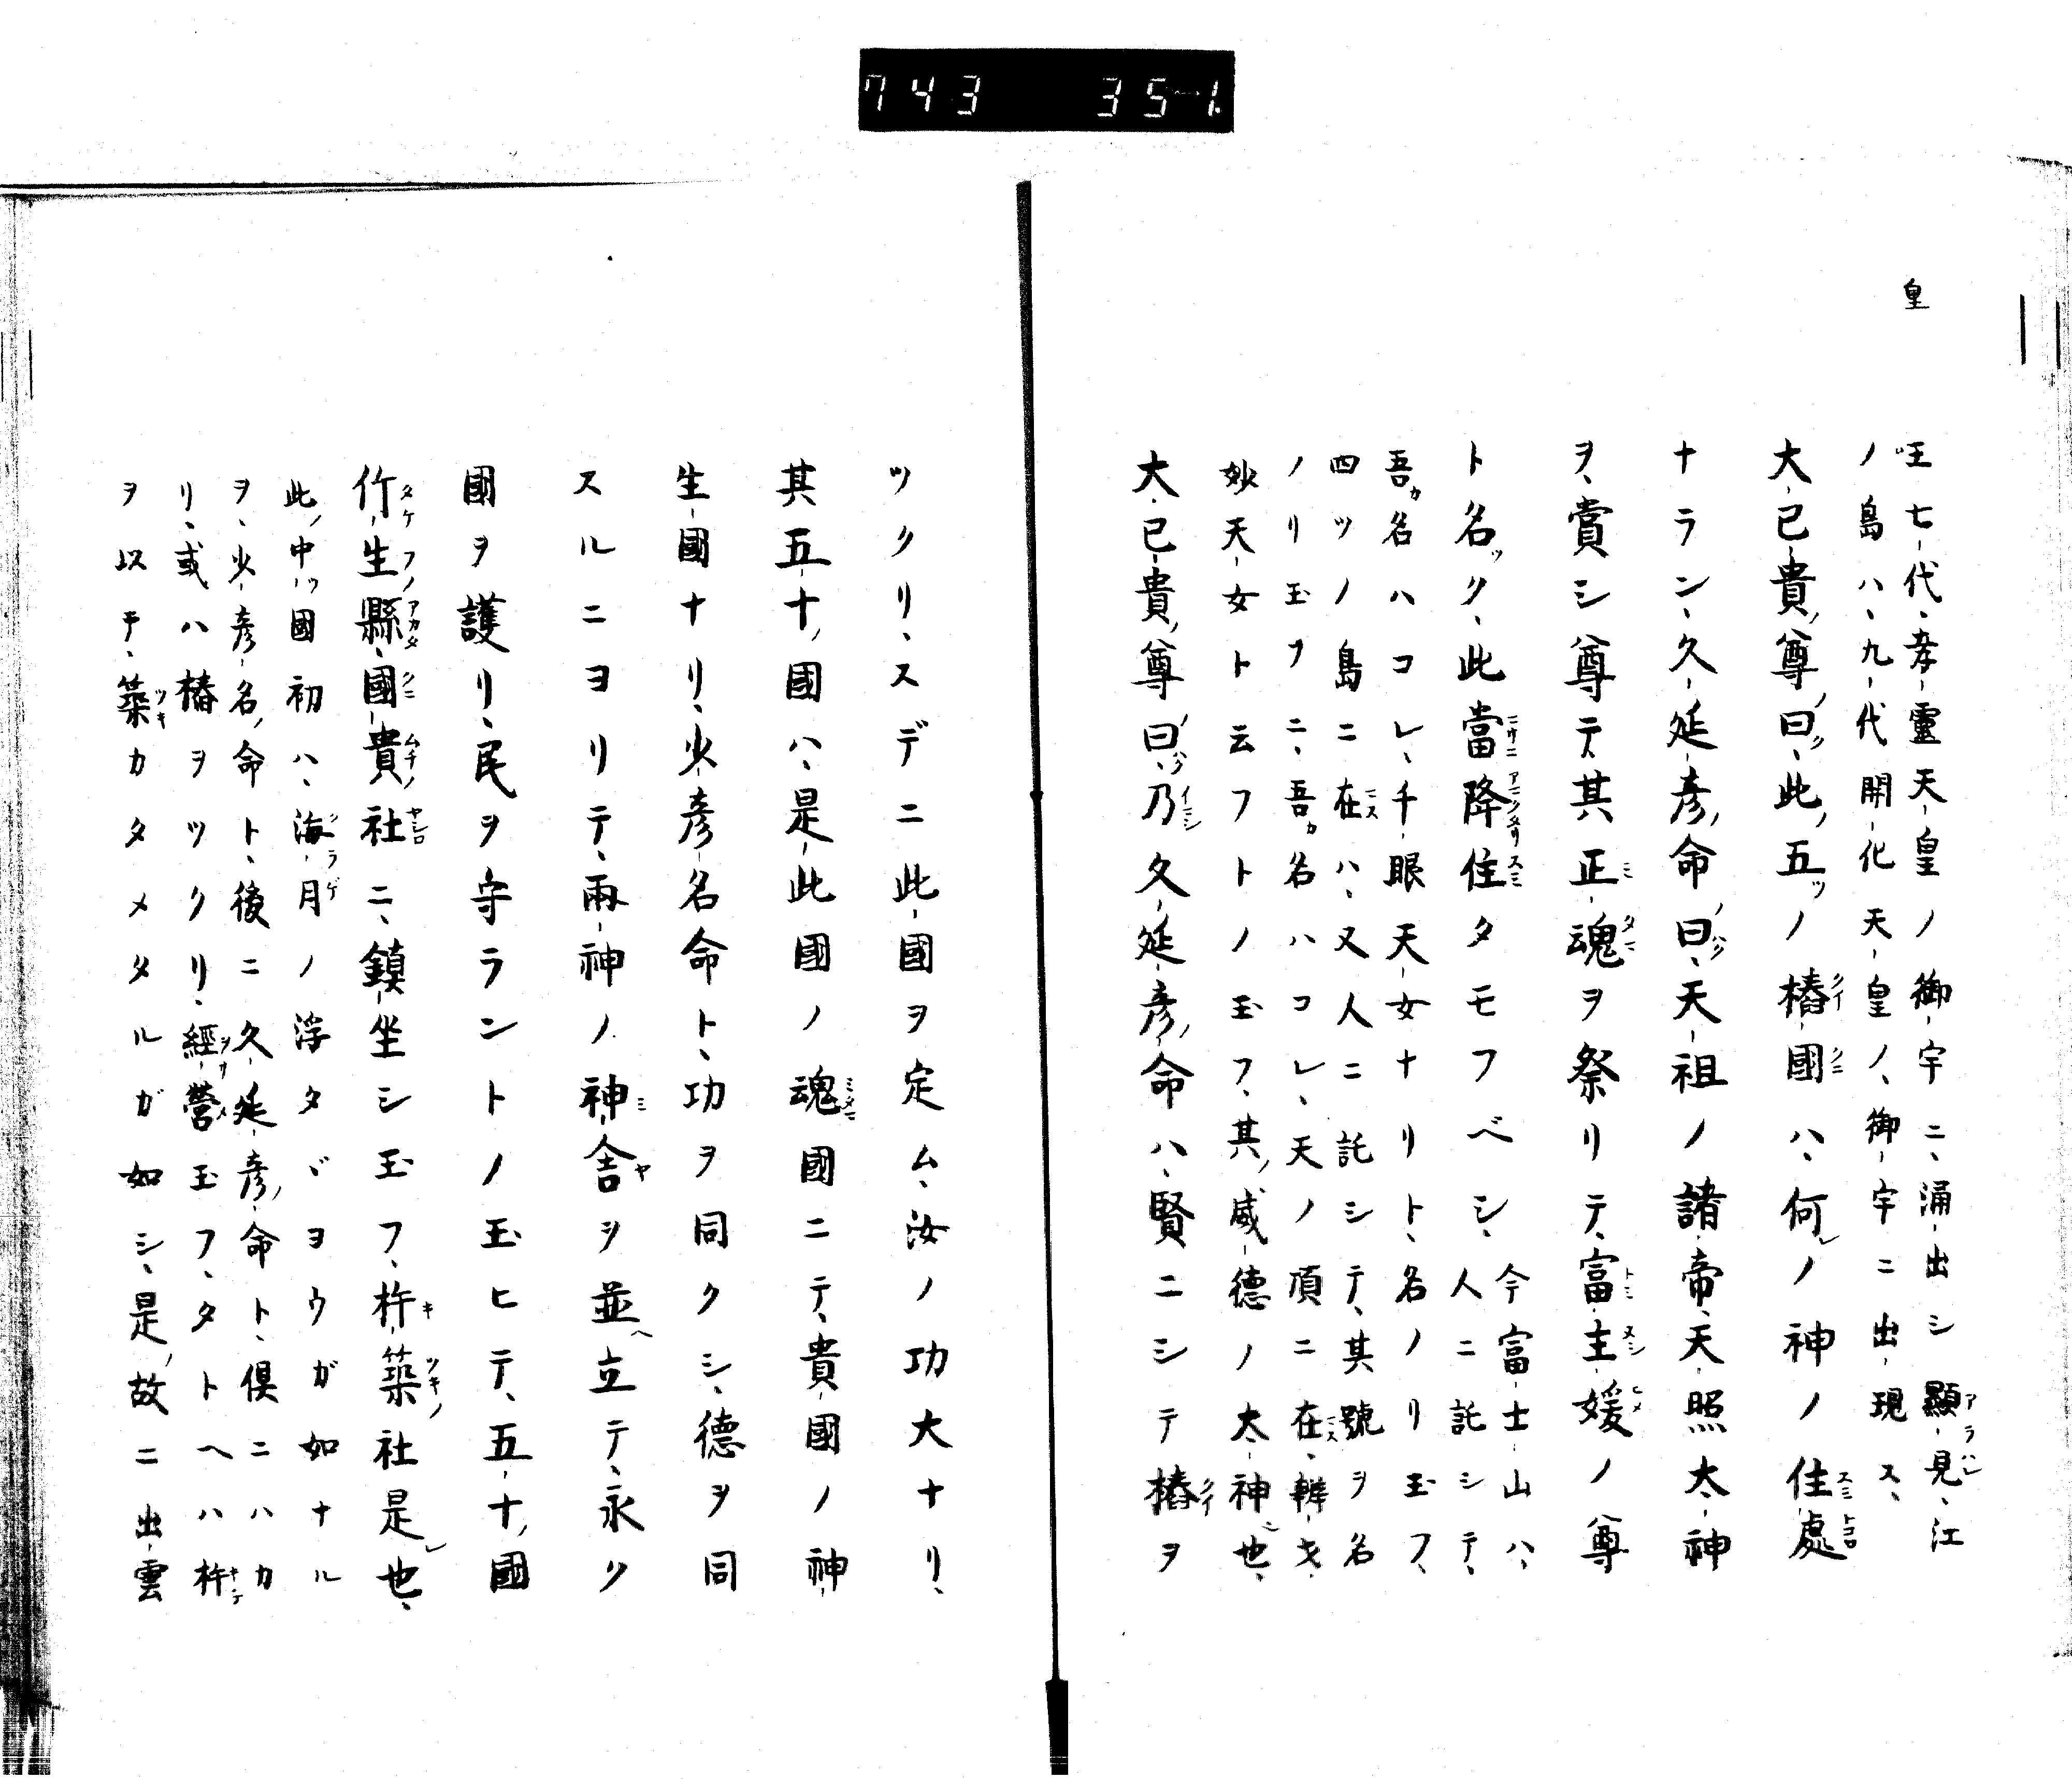 743 35-1
皇
王七代、孝霊天皇ノ御宇ニ、涌出シ顯見、江
ノ島ハ、九代開化天皇ノ、御宇ニ出現ス、
大已貴尊曰、此五ツノ樁國ハ、何ノ神ノ住處
ナラン、久延彦命曰、天祖ノ諸帝、天照太神
ヲ、賞シ尊テ其正魂ヲ祭リテ、富主媛ノ尊
ト名ック、此當降住タモフベシ、
今富士山ハ、
人ニ託シテ、
吾カ名ハコレ、千眼天女ナリト、名ノリ玉フ、
四ツノ島ニ在ハ、又人ニ託シテ、其號ヲ名
ノリ玉フニ、吾カ名ハコレ、天ノ頂ニ在、辨才
妙天女ト云フトノ玉フ、其威徳ノ太神也、
大已貴尊曰、乃久延彦命ハ、賢ニシテ樁ヲ
ツクリ、スデニ此國ヲ定ム、汝ノ功大ナリ、
其五十國ハ、是此國ノ魂國ニテ、貴國ノ神
生國ナリ、少彦名命ト、功ヲ同クシ、德ヲ同
スルニヨリテ、兩神ノ神舎ヲ並立テ、永ク
國ヲ護リ、民ヲ守ラントノ玉ヒテ、五十國
竹生縣國貴社ニ、鎮坐シ玉フ、杵築社是也、
此ノ中ツ國初ハ、海月ノ浮タヾヨウガ如ナル
ヲ、少彦名命ト、後ニ久延彦命ト、倶ニハカ
リ、或ハ樁ヲツクリ、經營玉フ、タトヘハ杵
ヲ以テ、築カタメタルガ如シ、是故ニ出雲